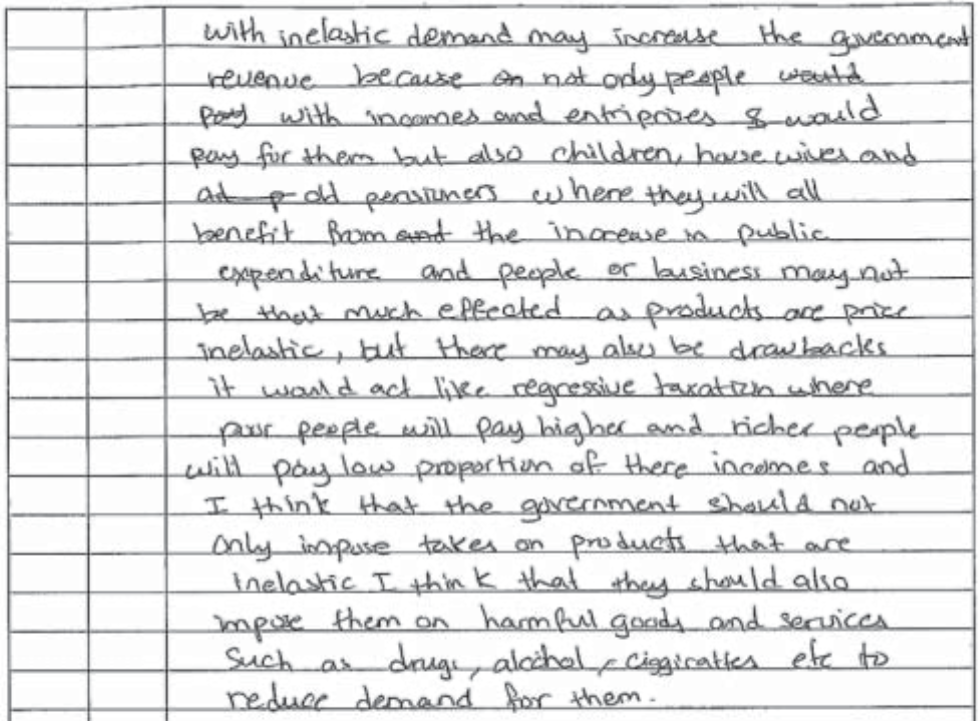 with inelastic demand may increase the government
revenue because on not only people would
pay with incomes and entriprises & would
pay for them but also children, house wives and
ad p old pensioners where they will all
benefit from and the increase in public
expenditure and people or business may not
be that much effected as products are price
inelastic, but there may also be drawbacks
it would act like regressive taxation where
poor people will pay higher and richer people
will pay low proportion of there incomes and
I think that the government should not
only impose taxes on products that are
inelastic I think that they should also
impose them on harmful goods and services
such as drugs, alcohol, ciggirattes etc to
reduce demand for them.